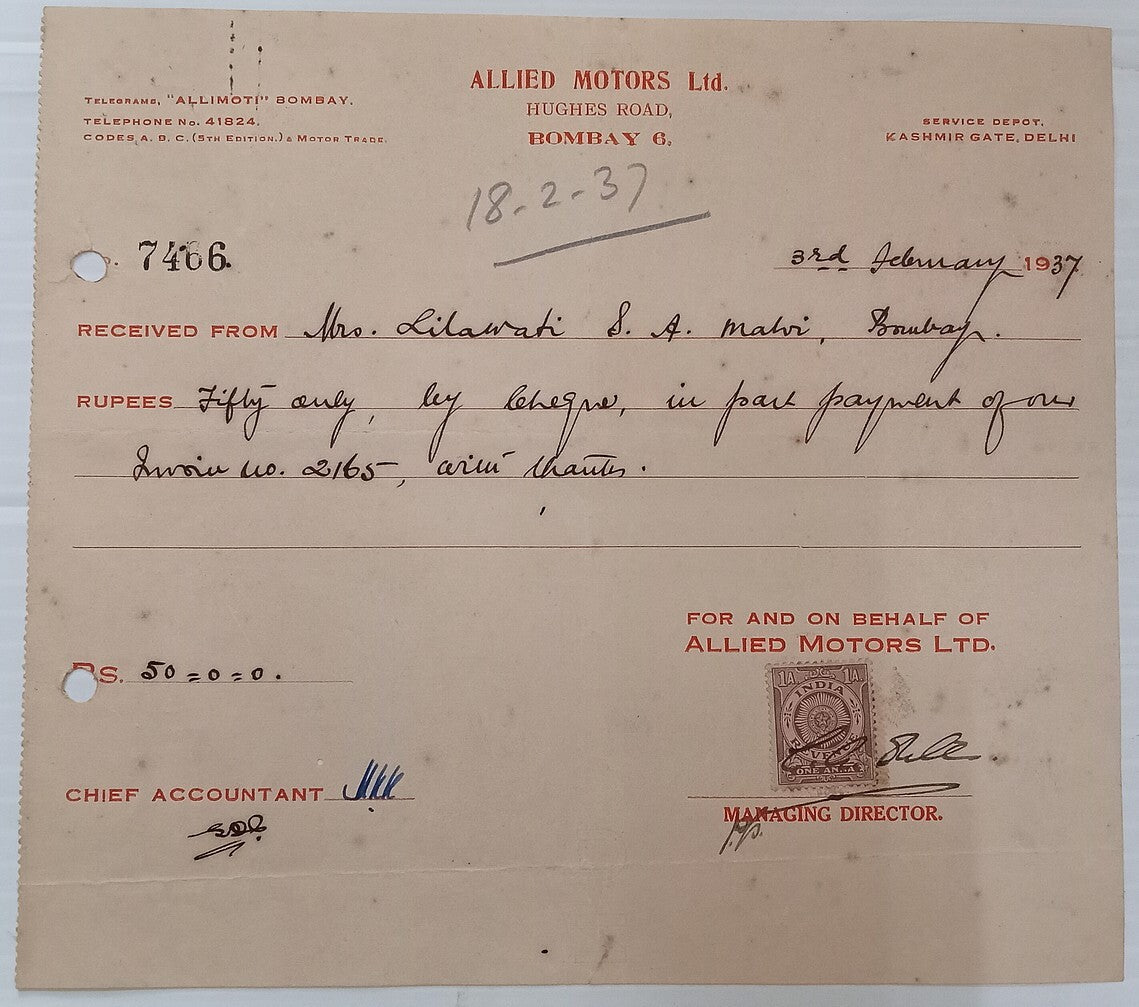 ALLIED MOTORS Ltd.
HUGHES ROAD,
BOMBAY 6.
TELEGRAMS, "ALLIMOTI" BOMBAY.
TELEPHONE No. 41824.
CODES A. B. C. (5TH EDITION.) & MOTOR TRADE.
SERVICE DEPOT,
KASHMIR GATE, DELHI
18-2-37
7466.
3rd February 1937
RECEIVED FROM Mrs. Lilawati S. A. Malvi, Bombay.
RUPEES Fifty only, by Cheque, in part payment of our
Invoice no. 2165, with thanks.
FOR AND ON BEHALF OF
ALLIED MOTORS LTD.
Rs. 50=0=0.
1A 1A
INDIA
REVENUE
ONE ANNA
CHIEF ACCOUNTANT
MANAGING DIRECTOR.